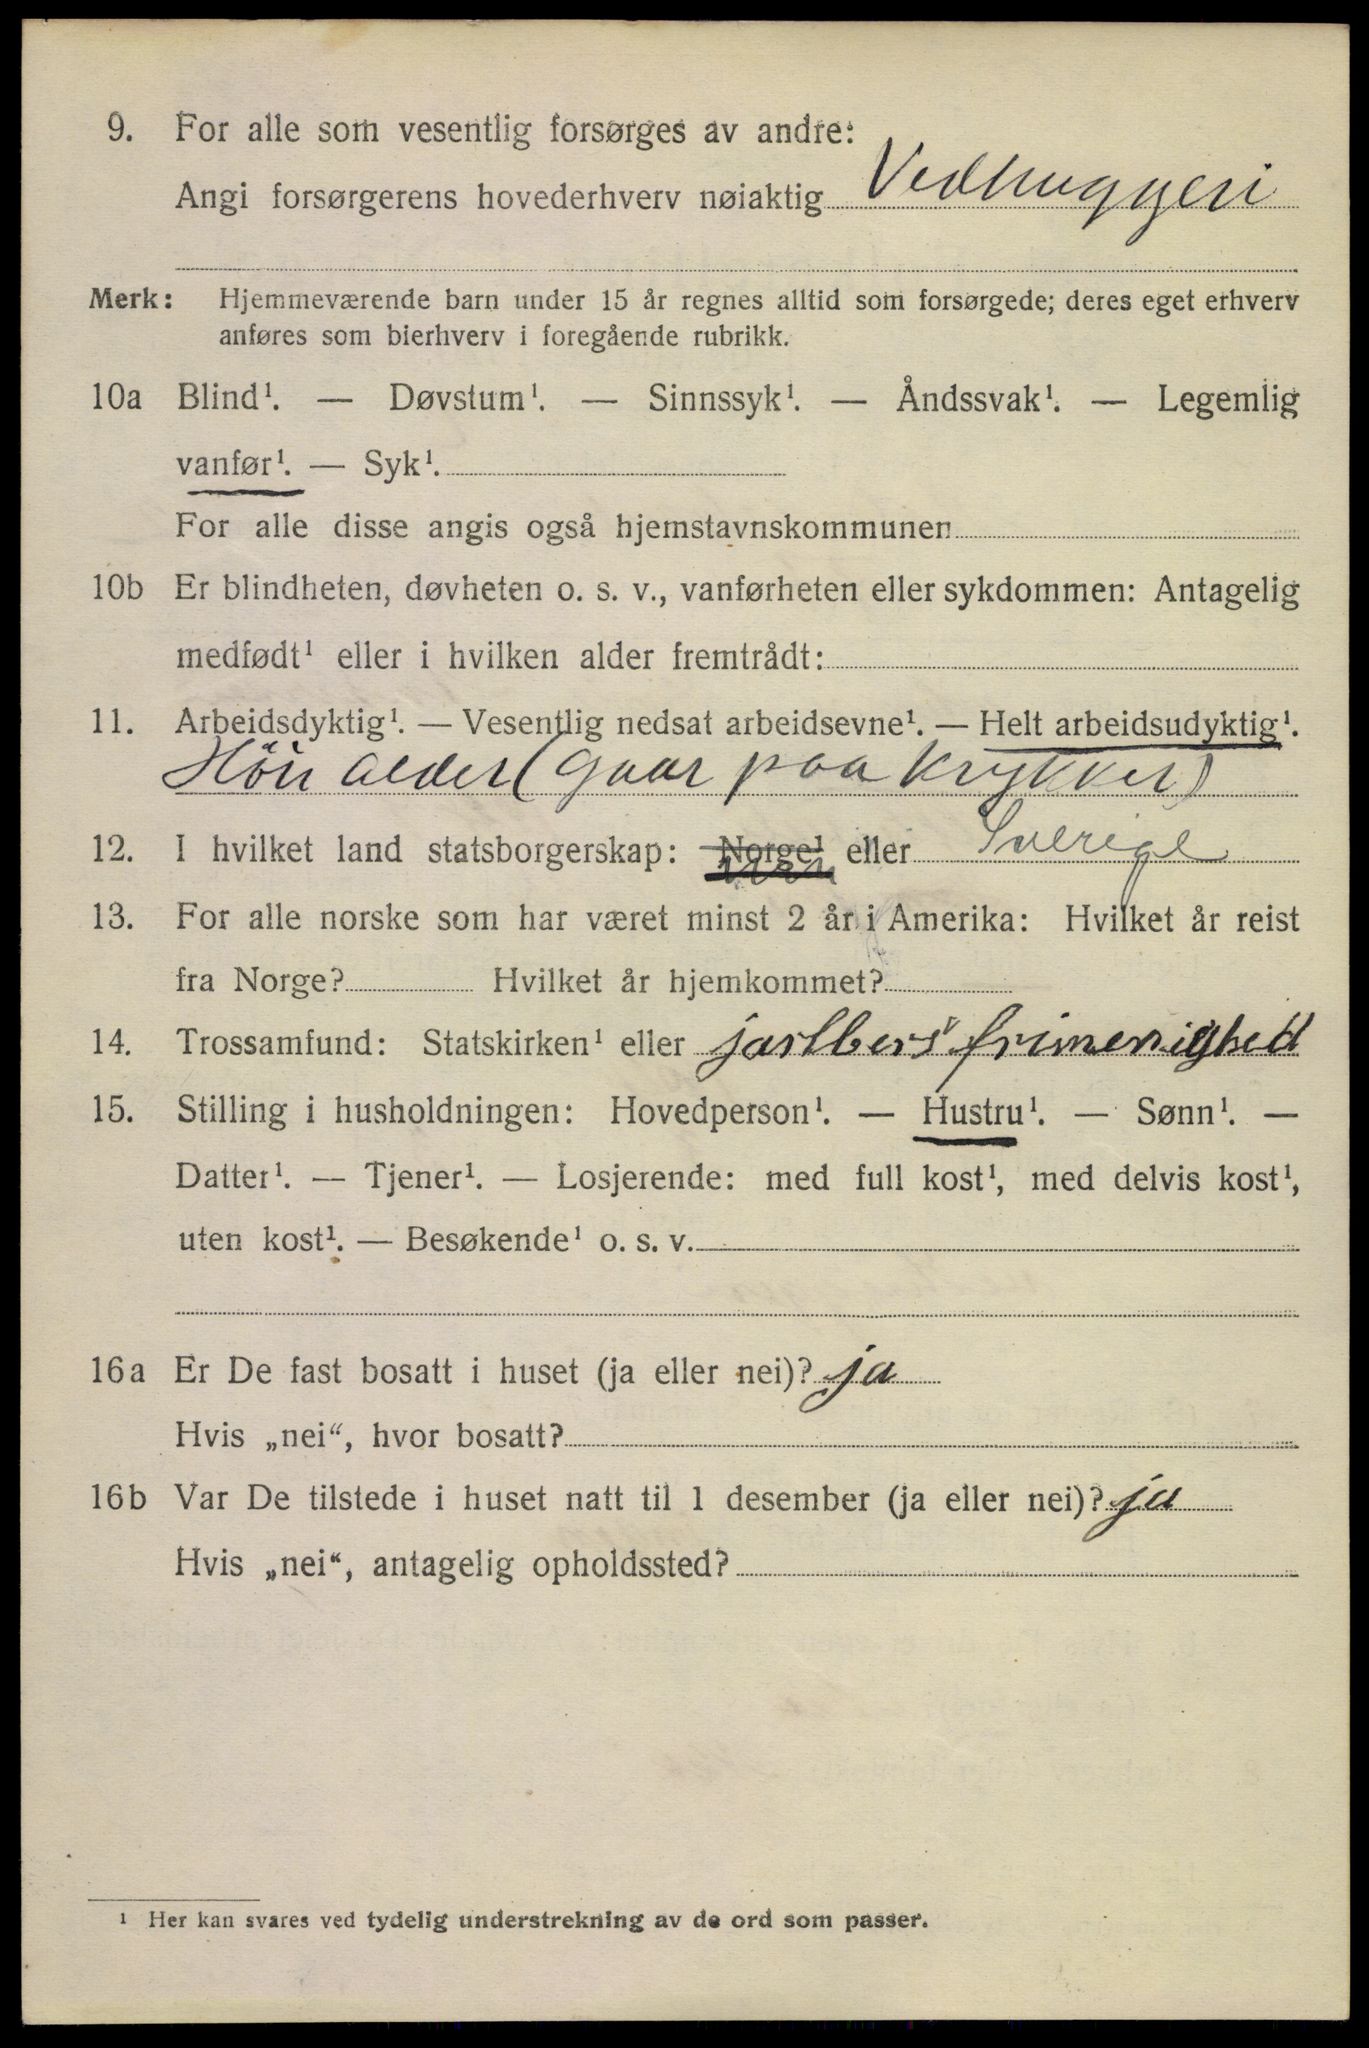 9. For alle som vesentlig forsørges av andre:
Angi forsørgerens hovederhverv nøiaktig Vedhuggeri
Merk: Hjemmeværende barn under 15 år regnes alltid som forsørgede; deres eget erhverv
anføres som bierhverv i foregående rubrikk.
10a Blind¹. — Døvstum¹. — Sinnssyk¹. — Åndssvak¹. — Legemlig
vanfør¹. — Syk¹.
For alle disse angis også hjemstavnskommunen
10b Er blindheten, døvheten o. s. v., vanførheten eller sykdommen: Antagelig
medfødt¹ eller i hvilken alder fremtrådt:
11. Arbeidsdyktig¹. — Vesentlig nedsat arbeidsevne¹. — Helt arbeidsudyktig¹.
Høii alder (gaar paa krykker)
12. I hvilket land statsborgerskap: Norge¹ eller Sverige
13. For alle norske som har været minst 2 år i Amerika: Hvilket år reist
fra Norge? Hvilket år hjemkommet?
14. Trossamfund: Statskirken¹ eller jarlbers frimenighed
15. Stilling i husholdningen: Hovedperson¹. — Hustru¹. — Sønn¹. —
Datter¹. — Tjener¹. — Losjerende: med full kost¹, med delvis kost¹,
uten kost¹. — Besøkende¹ o. s. v.
16a Er De fast bosatt i huset (ja eller nei)? ja
Hvis „nei“, hvor bosatt?
16b Var De tilstede i huset natt til 1 desember (ja eller nei)? ja
Hvis „nei“, antagelig opholdssted?
¹ Her kan svares ved tydelig understrekning av de ord som passer.